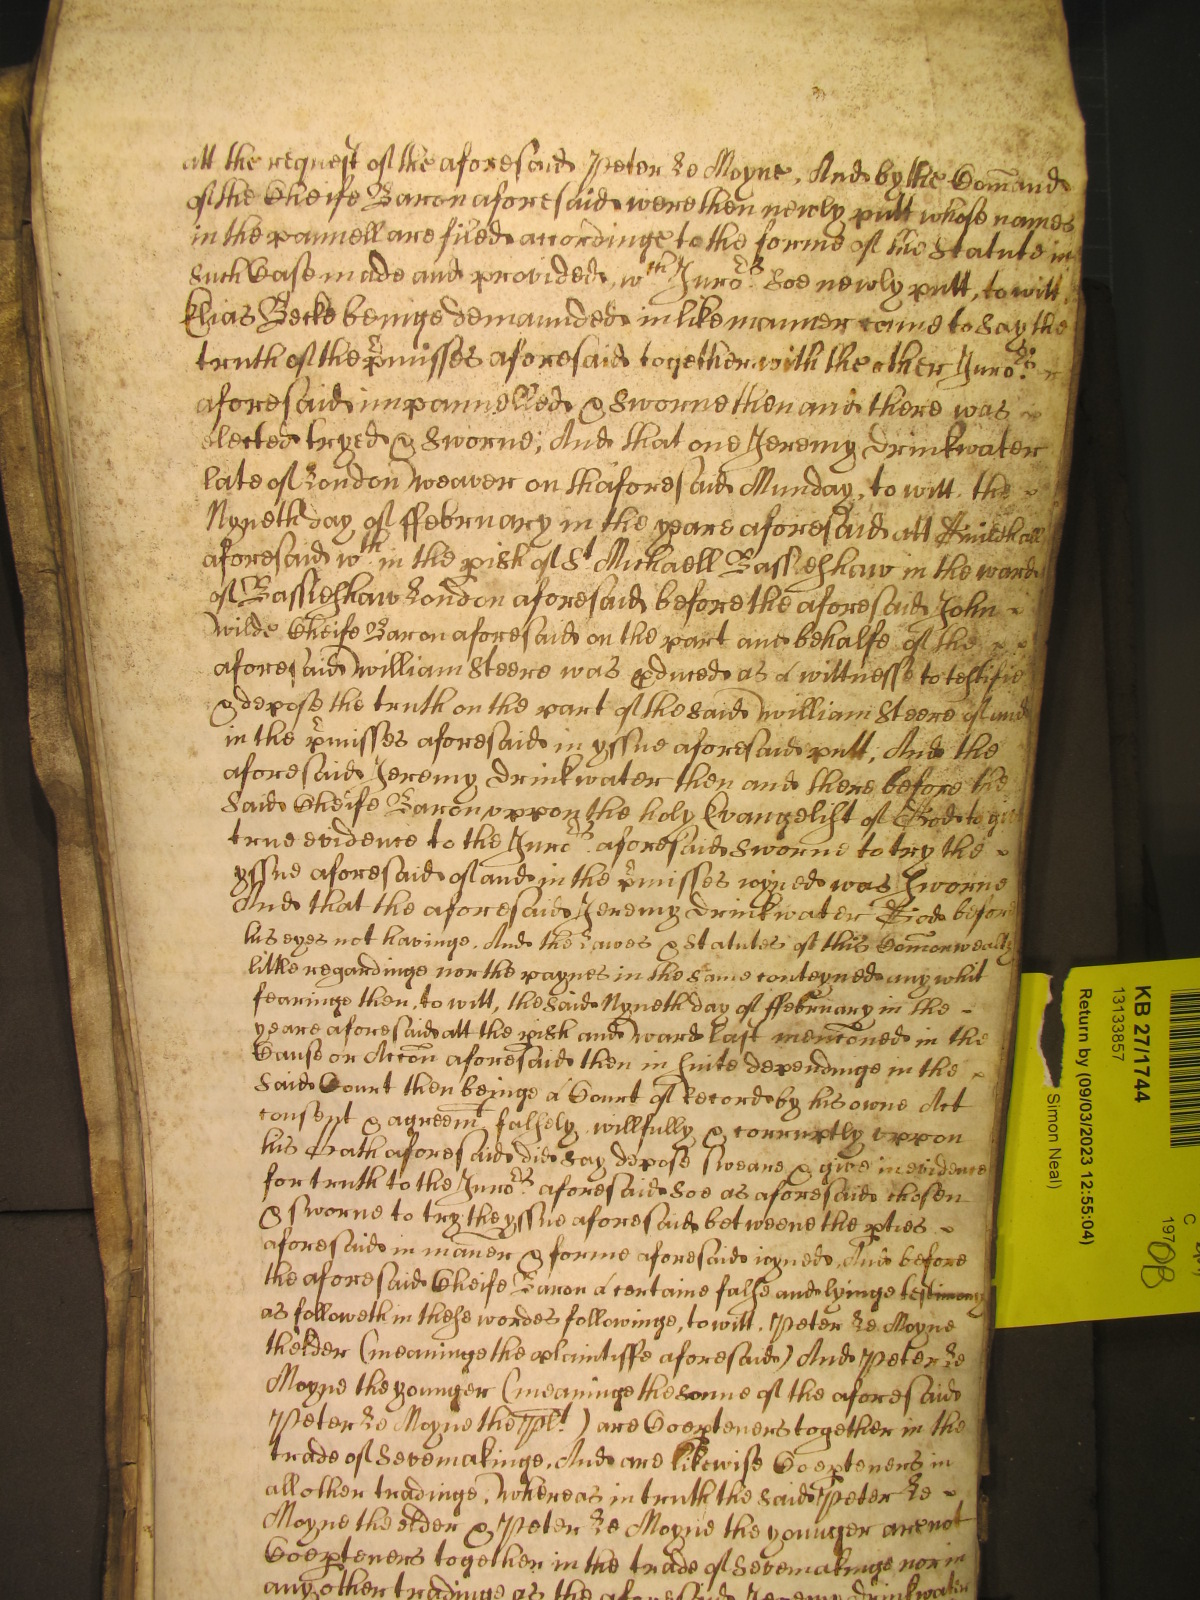 att the request of the aforesaid Peter Le Moyne, And by the Comaund
of the Cheife Baron aforesaid were then newly putt whose names
in the pannell are filed accordinge to the forme of the Statute in
such Case made and provided, wth Juro:rs soe newly putt, to witt,
Elias Becke beinge demaunded in like manner came to say the
truth of the p̄misses aforesaid together with the other Juro:rs
aforesaid impannelled & sworne then and there was
elected tryed & sworne, And that one Jeremy Drinkwater
late of London weaver on thaforesaid Munday, to witt, the
Nyneth day of ffebruary in the yeare aforesaid att Guildhall
aforesaid wth in the pish of St Michaell Bassieshaw in the ward
of Bassieshaw London aforesaid before the aforesaid John
Wilde Cheife Baron aforesaid on the part and behalfe of the
aforesaid William Steere was pduced as a wittnesse to testifie
& depose the truth on the part of the said William Steere of and
in the p̄misses aforesaid in yssue aforesaid putt, And the
aforesaid Jeremy Drinkwater then and there before the
said Cheife Baron uppon the holy Evangelist of God to give
true evidence to the Juro:rs aforesaid sworne to try the
yssue aforesaid of and in the p̄misses ioyned was sworne
And that the aforesaid Jeremy Drinkwater God before
his eyes not havinge, And the Lawes & Statutes of this Com̄onwealth
little regardinge nor the paynes in the same conteyned any whit
fearinge then, to witt, the said Nyneth day of ffebruary in the
yeare aforesaid att the pish and ward last menc̄oned in the
Cause or Acc̄on aforesaid then in suite dependinge in the
said Court then beinge a Court of Record by his owne Act
consent & agreemt falsely willfully & corruptly uppon
his Oath aforesaid did say depose sweare & give in evidence
for truth to the Juro:rs aforesaid soe as aforesaid chosen
& sworne to try the yssue aforesaid betweene the pties
aforesaid in man̄er & forme aforesaid ioyned, And before
the aforesaid Cheife Baron a certaine false and lyinge testimony
as followeth in these wordes followinge, to witt, Peter Le Moyne
thelder (meaninge the plaintiffe aforesaid) And Peter Le
Moyne the younger (meaninge the sonne of the aforesaid
Peter Le Moyne the plt) are Coepteners together in the
trade of Sevemakinge, And are likewise Coepteners in
all other tradinge, Whereas in truth the said Peter Le
Moyne the elder & Peter Le Moyne the younger are not
Coepteners together in the trade of Sevemakinge nor in
any other tradinge as the aforesaid Jeremy Drinkwater
KB 27/1744
13133857
Return by (09/03/2023 12:55:04)
Simon Neal)